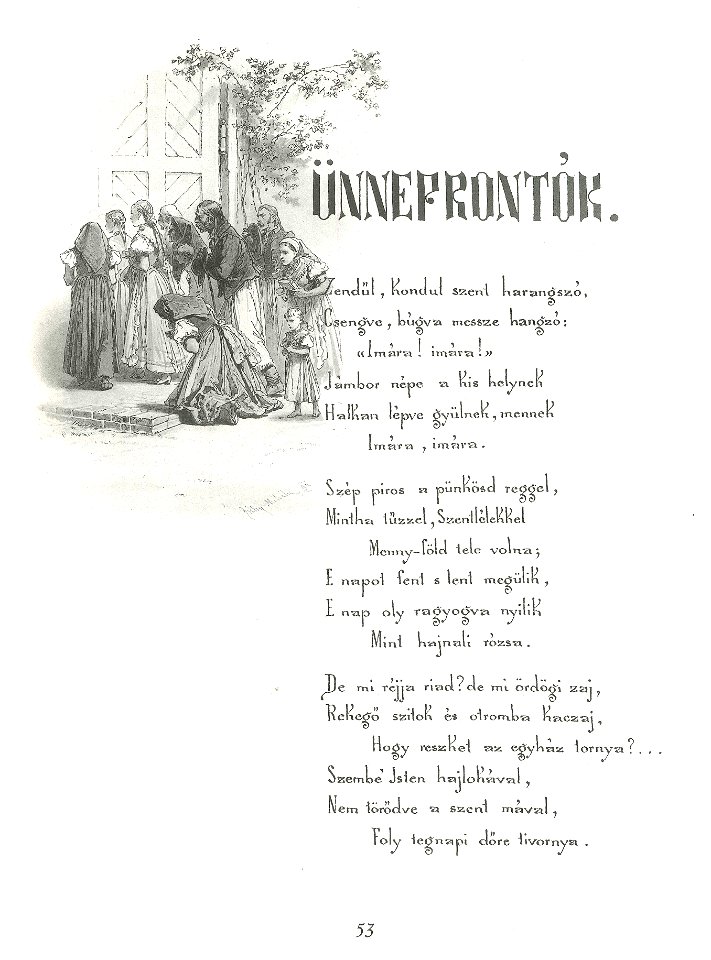 ÜNNEPRONTÓK.
Zendűl, Kondul szent harangszó,
Csengve, búgva messze hangzó:
«Imára! imára!»
Jámbor népe a kis helynek
Halkan lépve gyülnek, mennek
Imára, imára.
Szép piros a pünkösd reggel,
Mintha tűzzel, Szentlélekkel
Menny-föld tele volna;
E napot fent s lent megülik,
E nap oly ragyogva nyilik
Mint hajnali rózsa.
De mi réjja riad? de mi ördögi zaj,
Rekegő szitok és otromba kaczaj,
Hogy reszket az egyház tornya?...
Szembe Isten hajlokával,
Nem törődve a szent mával,
Foly tegnapi dőre tivornya.
53